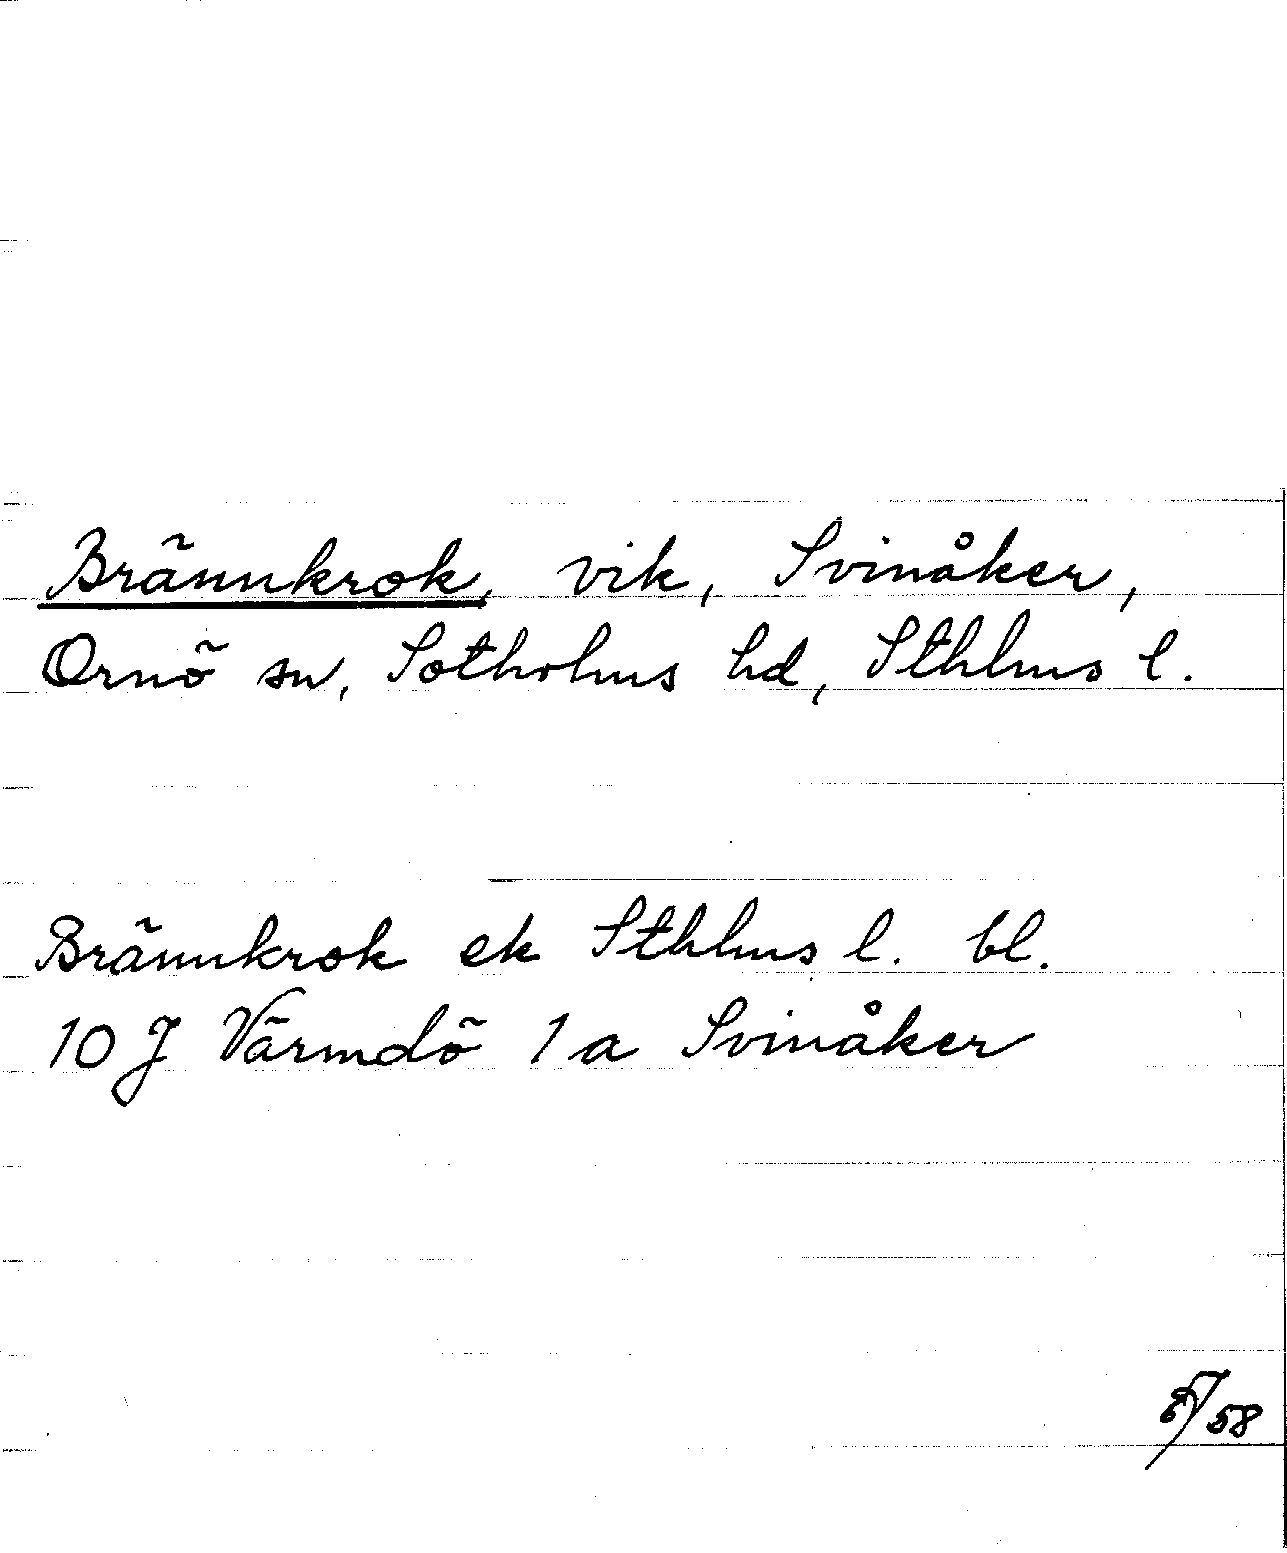 Brännkrok, vik, Svinåker,
Ornö sn, Sotholms hd, Sthlms l.
Brännkrok ek Sthlms l. bl.
10 J Värmdö 1 a Svinåker
/58